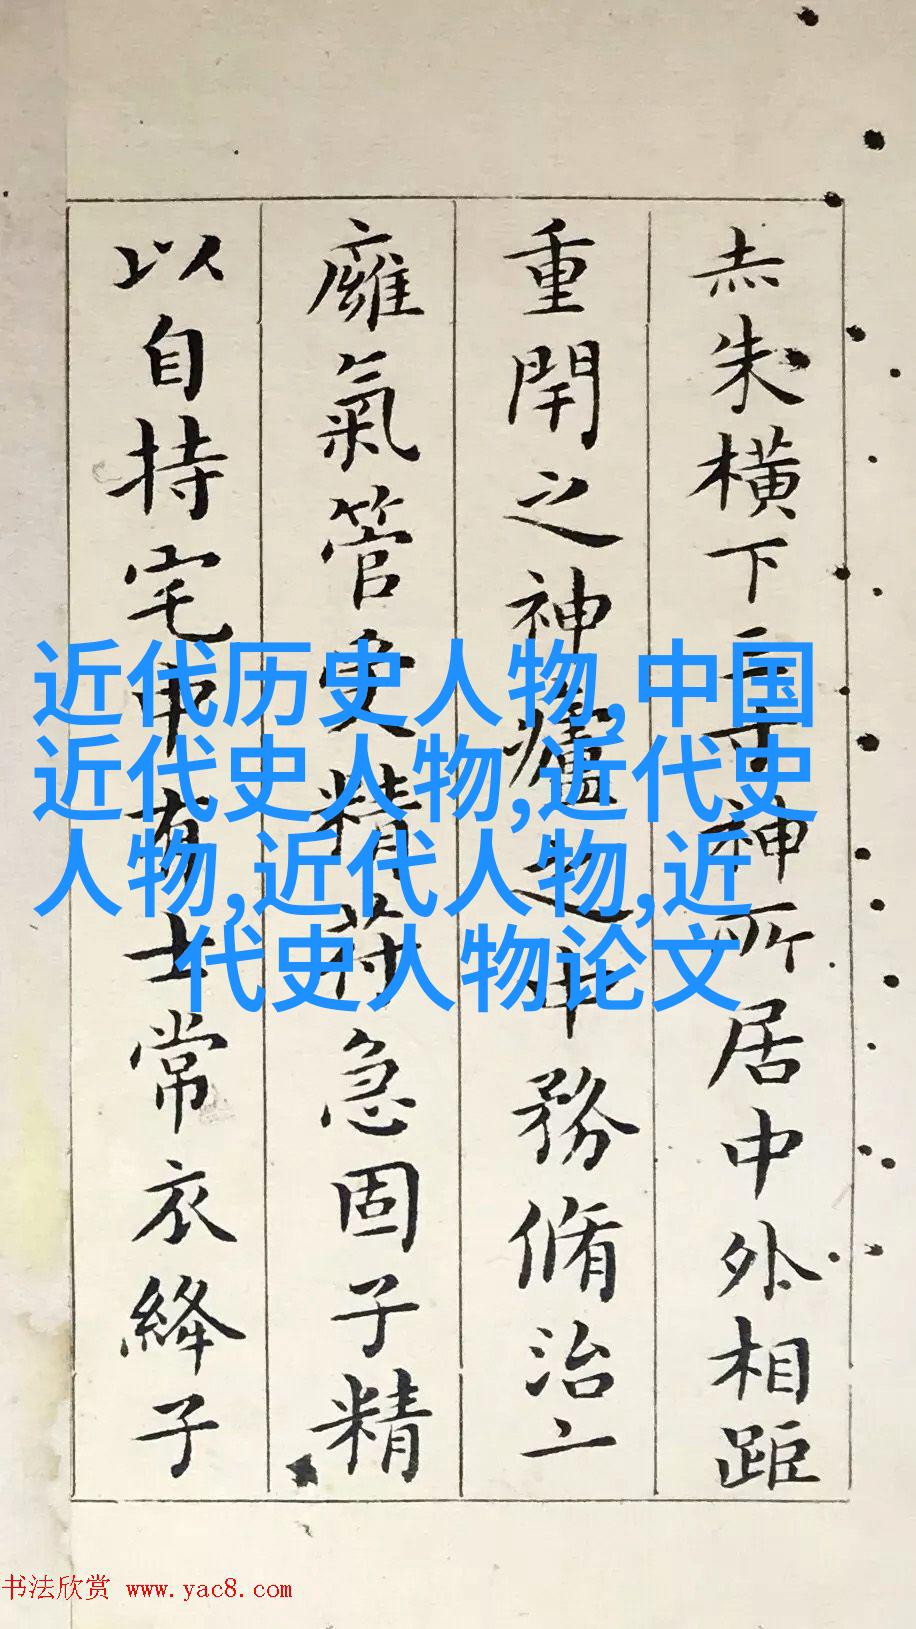 赤朱橫下三寸神所居中外相距
重閈之神廬之中務脩治
廱氣管受精苻急固子精
以自持宅中有士常衣絳子
近代历史人物,中国
近代史人物,近代史
人物,近代人物,近
代史人物论文
书法欣赏 www.yac8.com